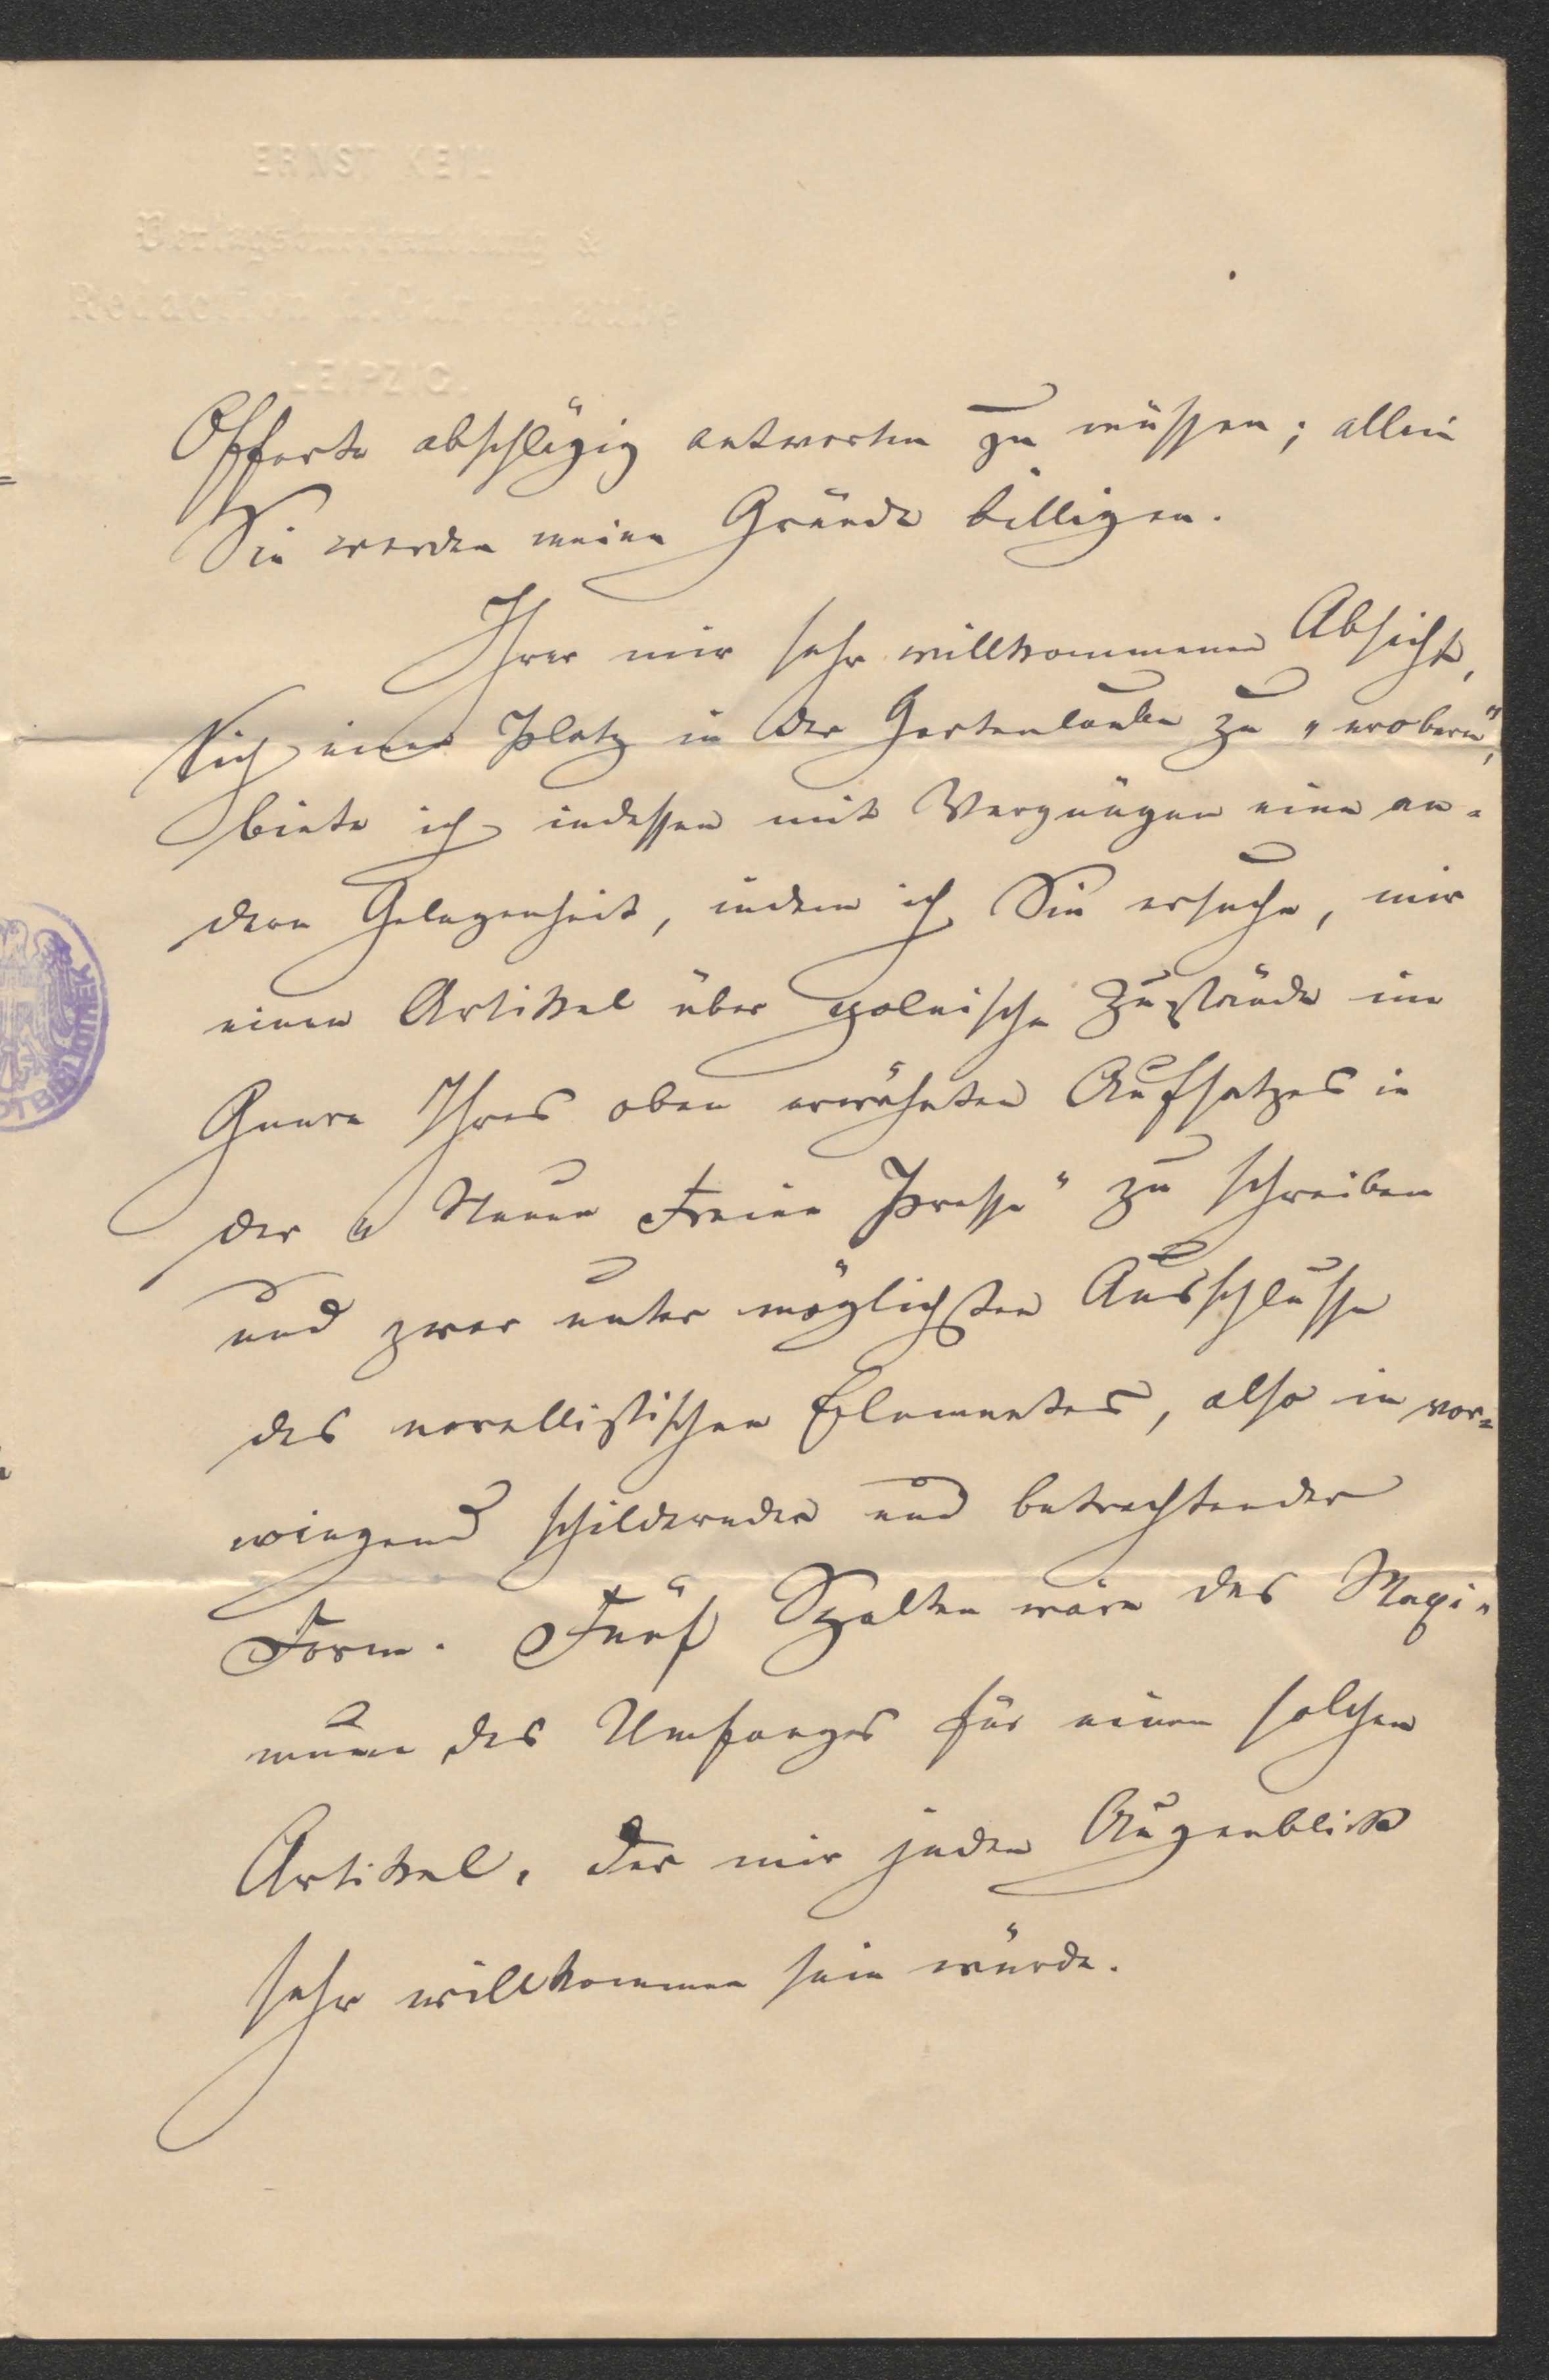 ERNST KEIL
Verlagsbuchhandlung &
Redaction d. Gartenlaube
LEIPZIG.
Offerte abschlägig antworten zu müssen; allein
Sie werden meine Gründe billigen.
Ihrer mir sehr willkommenen Absicht,
Sich einen Platz in der Gartenlaube zu „erobern“,
biete ich indessen mit Vergnügen eine an-
dere Gelegenheit, indem ich Sie ersuche, mir
einen Artikel über polnische Zustände im
Genre Ihres oben erwähnten Aufsatzes in
der „Neuen Freien Presse“ zu schreiben
und zwar unter möglichstem Ausschlusse
des novellistischen Elementes, also in vor-
wiegend schildernder und betrachtender
Form. Fünf Spalten wäre das Maxi-
mum des Umfanges für einen solchen
Artikel, der mir jeden Augenblick
sehr willkommen sein würde.
OTBIBLIOTHEK